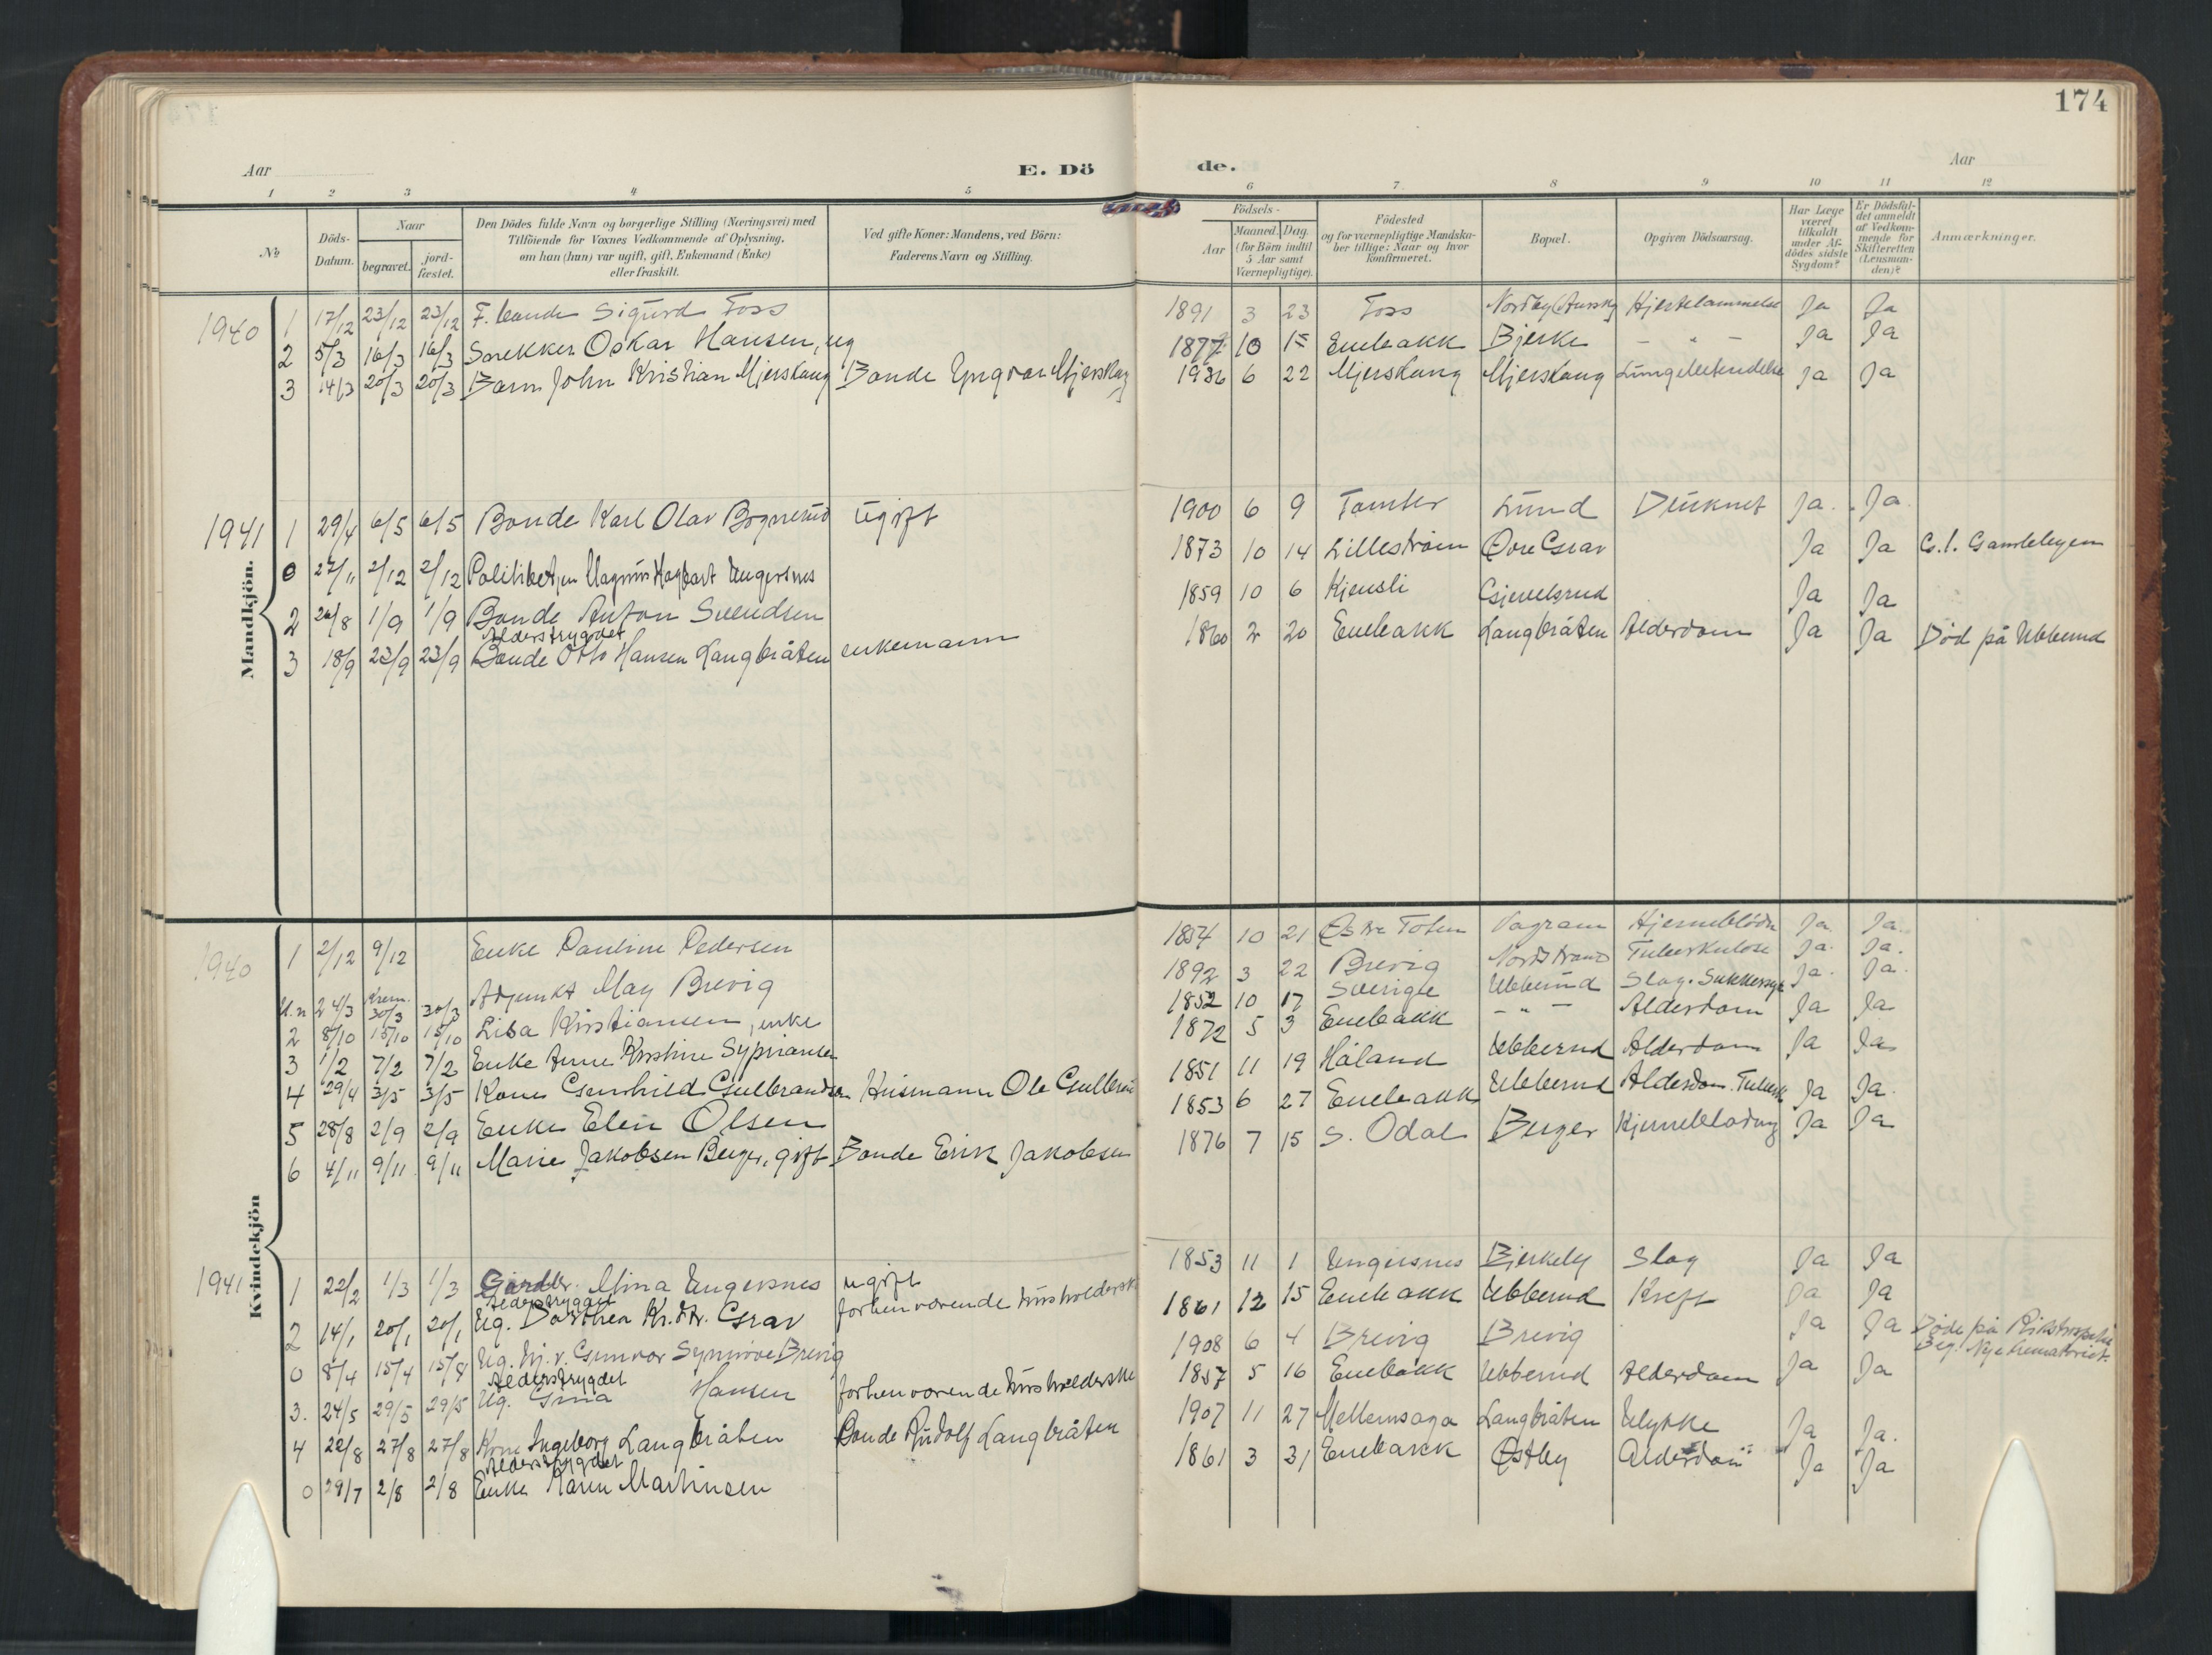 174
Aar
E. Dö
de.
Aar
1 2 3 4 5 6 7 8 9 10 11 12
No
Döds-Datum.
Naar
begravet.
jord-fæstet.
Den Dödes fulde Navn og borgerlige Stilling (Næringsvei) med
Tilföiende for Voxnes Vedkommende af Oplysning,
om han (hun) var ugift, gift, Enkemand (Enke)
eller fraskilt.
Ved gifte Koner: Mandens, ved Börn:
Faderens Navn og Stilling.
Födsels-
Aar
Maaned. Dag.
(for Börn indtil
5 Aar samt
Værnepligtige).
Födested
og for værnepligtige Mandska-
ber tillige: Naar og hvor
konfirmeret.
Bopæl.
Opgiven Dödsaarsag.
Har Læge
været
tilkaldt
under Af-
dödes sidste
Sygdom?
Er Dödsfal-
det anmeldt
af Vedkom-
mende for
Skifteretten
(Lensman-
den)?
Anmærkninger.
Mandkjön.
1940 1 17/12 23/12 23/12 F. bonde Sigurd Foss 1891 3 23 Foss Nordby Hjertelammelse Ja Ja
2 5/3 16/3 16/3 Snekker Oskar Hansen, ug 1877 10 15 Enebakk Bjerke – " – Ja Ja
3 14/3 20/3 20/3 Barn John Kristian Mjerskaug Bonde Yngvar Mjerskaug 1936 6 22 Mjerskaug Mjerskaug Lungebetendelse Ja Ja
1941 1 29/4 6/5 6/5 Bonde Karl Olav Bognerud ugift 1900 6 9 Tomter Lund Druknet Ja. Ja.
0 27/11 2/12 2/12 Politibetj. Magnus Hagbart Ungersnes 1873 10 14 Lilleström Övre Grav Ja Ja G.l. Gamlebyen
2 26/8 1/9 1/9 Bonde Anton Svendsen 1859 10 6 Kjensli Gjevelsrud Ja Ja
Alderstrygdet
3 18/9 23/9 23/9 Bonde Otto Hansen Langbråten enkemann 1860 2 20 Enebakk Langbråten Alderdom Ja Ja Död på Ubberud
Kvindekjön
1940 1 2/12 9/12 Enke Pauline Pedersen 1854 10 21 Östre Toten Vagram Hjerneblödn Ja Ja.
U.n 24/3 Krem. 30/3 30/3 Adjunkt May Brevig 1892 3 22 Brevig Nordstrand Tuberkulose Ja. Ja.
2 8/10 15/10 15/10 Lisa Kristiansen, enke 1852 10 17 Sverige Ubberud Slag. Sukkersyke Ja. Ja.
3 1/2 7/2 7/2 Enke Anne Kristine Sypriansen 1872 5 3 Enebakk – " – Alderdom Ja Ja
4 29/4 3/5 3/5 Kone Gunhild Gulbrandsen Husmann Ole Gulbran 1851 11 19 Håland Ubberud Alderdom Ja Ja
5 28/8 2/9 2/9 Enke Elen Olsen 1853 6 27 Enebakk Ubberud Alderdom. Tuberk Ja Ja.
6 4/11 9/11 9/11 Marie Jakobsen Berger, gift Bonde Erik Jakobsen 1876 7 15 S. Odal Berger Hjerneblødning Ja Ja
1941 1 22/2 1/3 1/3 Gårdbr. Mina Ungersnes ugift 1853 11 1 Ungersnes Bjerkely Slag Ja Ja
Alderstrygdet
2 14/1 20/1 20/1 Ug. Dorthea Kr.dtr. Grav forhenværende husholderske 1861 12 15 Enebakk Ubberud Kreft Ja Ja
0 8/4 15/4 15/4 Ug. Hj.v. Gunvor Synnøve Brevig 1908 6 4 Brevig Brevig Ja Ja Døde på Rikshospital
Beg. Nye krematoriet.
Alderstrygdet
3. 24/5 29/5 29/5 Ug. Gina Hansen forhenværende husholderske 1857 5 16 Enebakk Ubberud Alderdom Ja Ja
4 22/8 27/8 27/8 Kone Ingeborg Langbråten Bonde Rudolf Langbråten 1907 11 27 Mellemsaga Langbråten Ulykke Ja Ja.
Alderstrygdet
0 29/7 2/8 2/8 Enke Karen Martinsen 1861 3 31 Enebakk Østby Alderdom Ja Ja